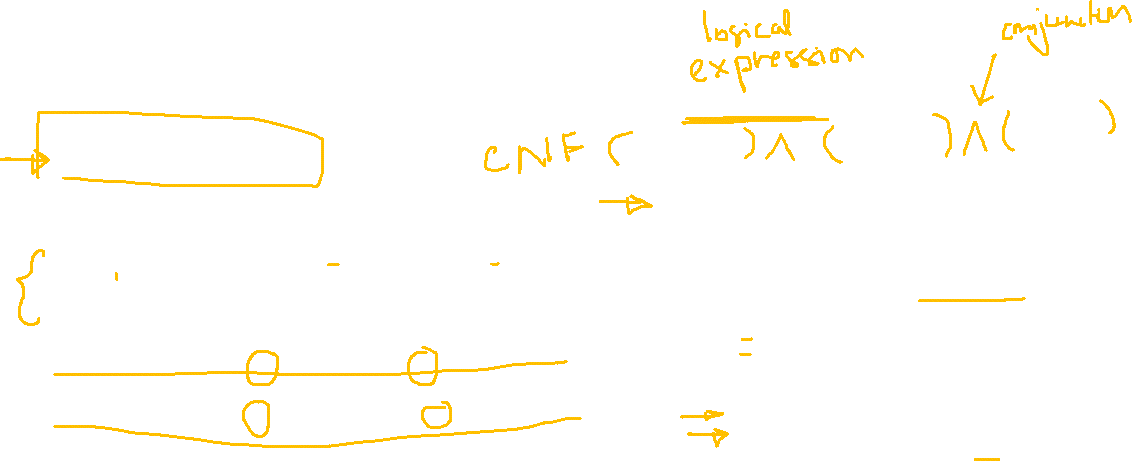 logical
expression
conjunction
CNF ( ) ∧ ( ) ∧ ( )